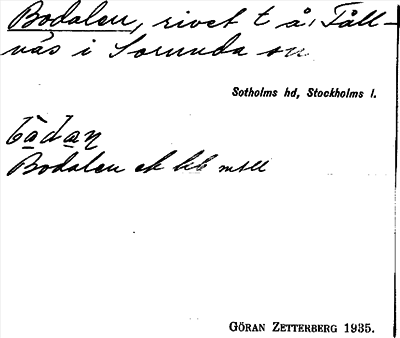 Bodalen, rivet t å, Fåll-
näs i Sorunda sn
Sotholms hd, Stockholms l.
Bodalen ek kb
GÖRAN ZETTERBERG 1935.